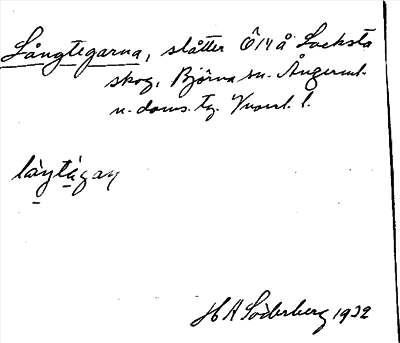 Långtegarna, slåtter Ö 14 å Locksta
skog, Björna sn. Ångerml.
n. doms. tg. Vnorrl. l.
làŋtàgaɳ
H A Söderberg 1932